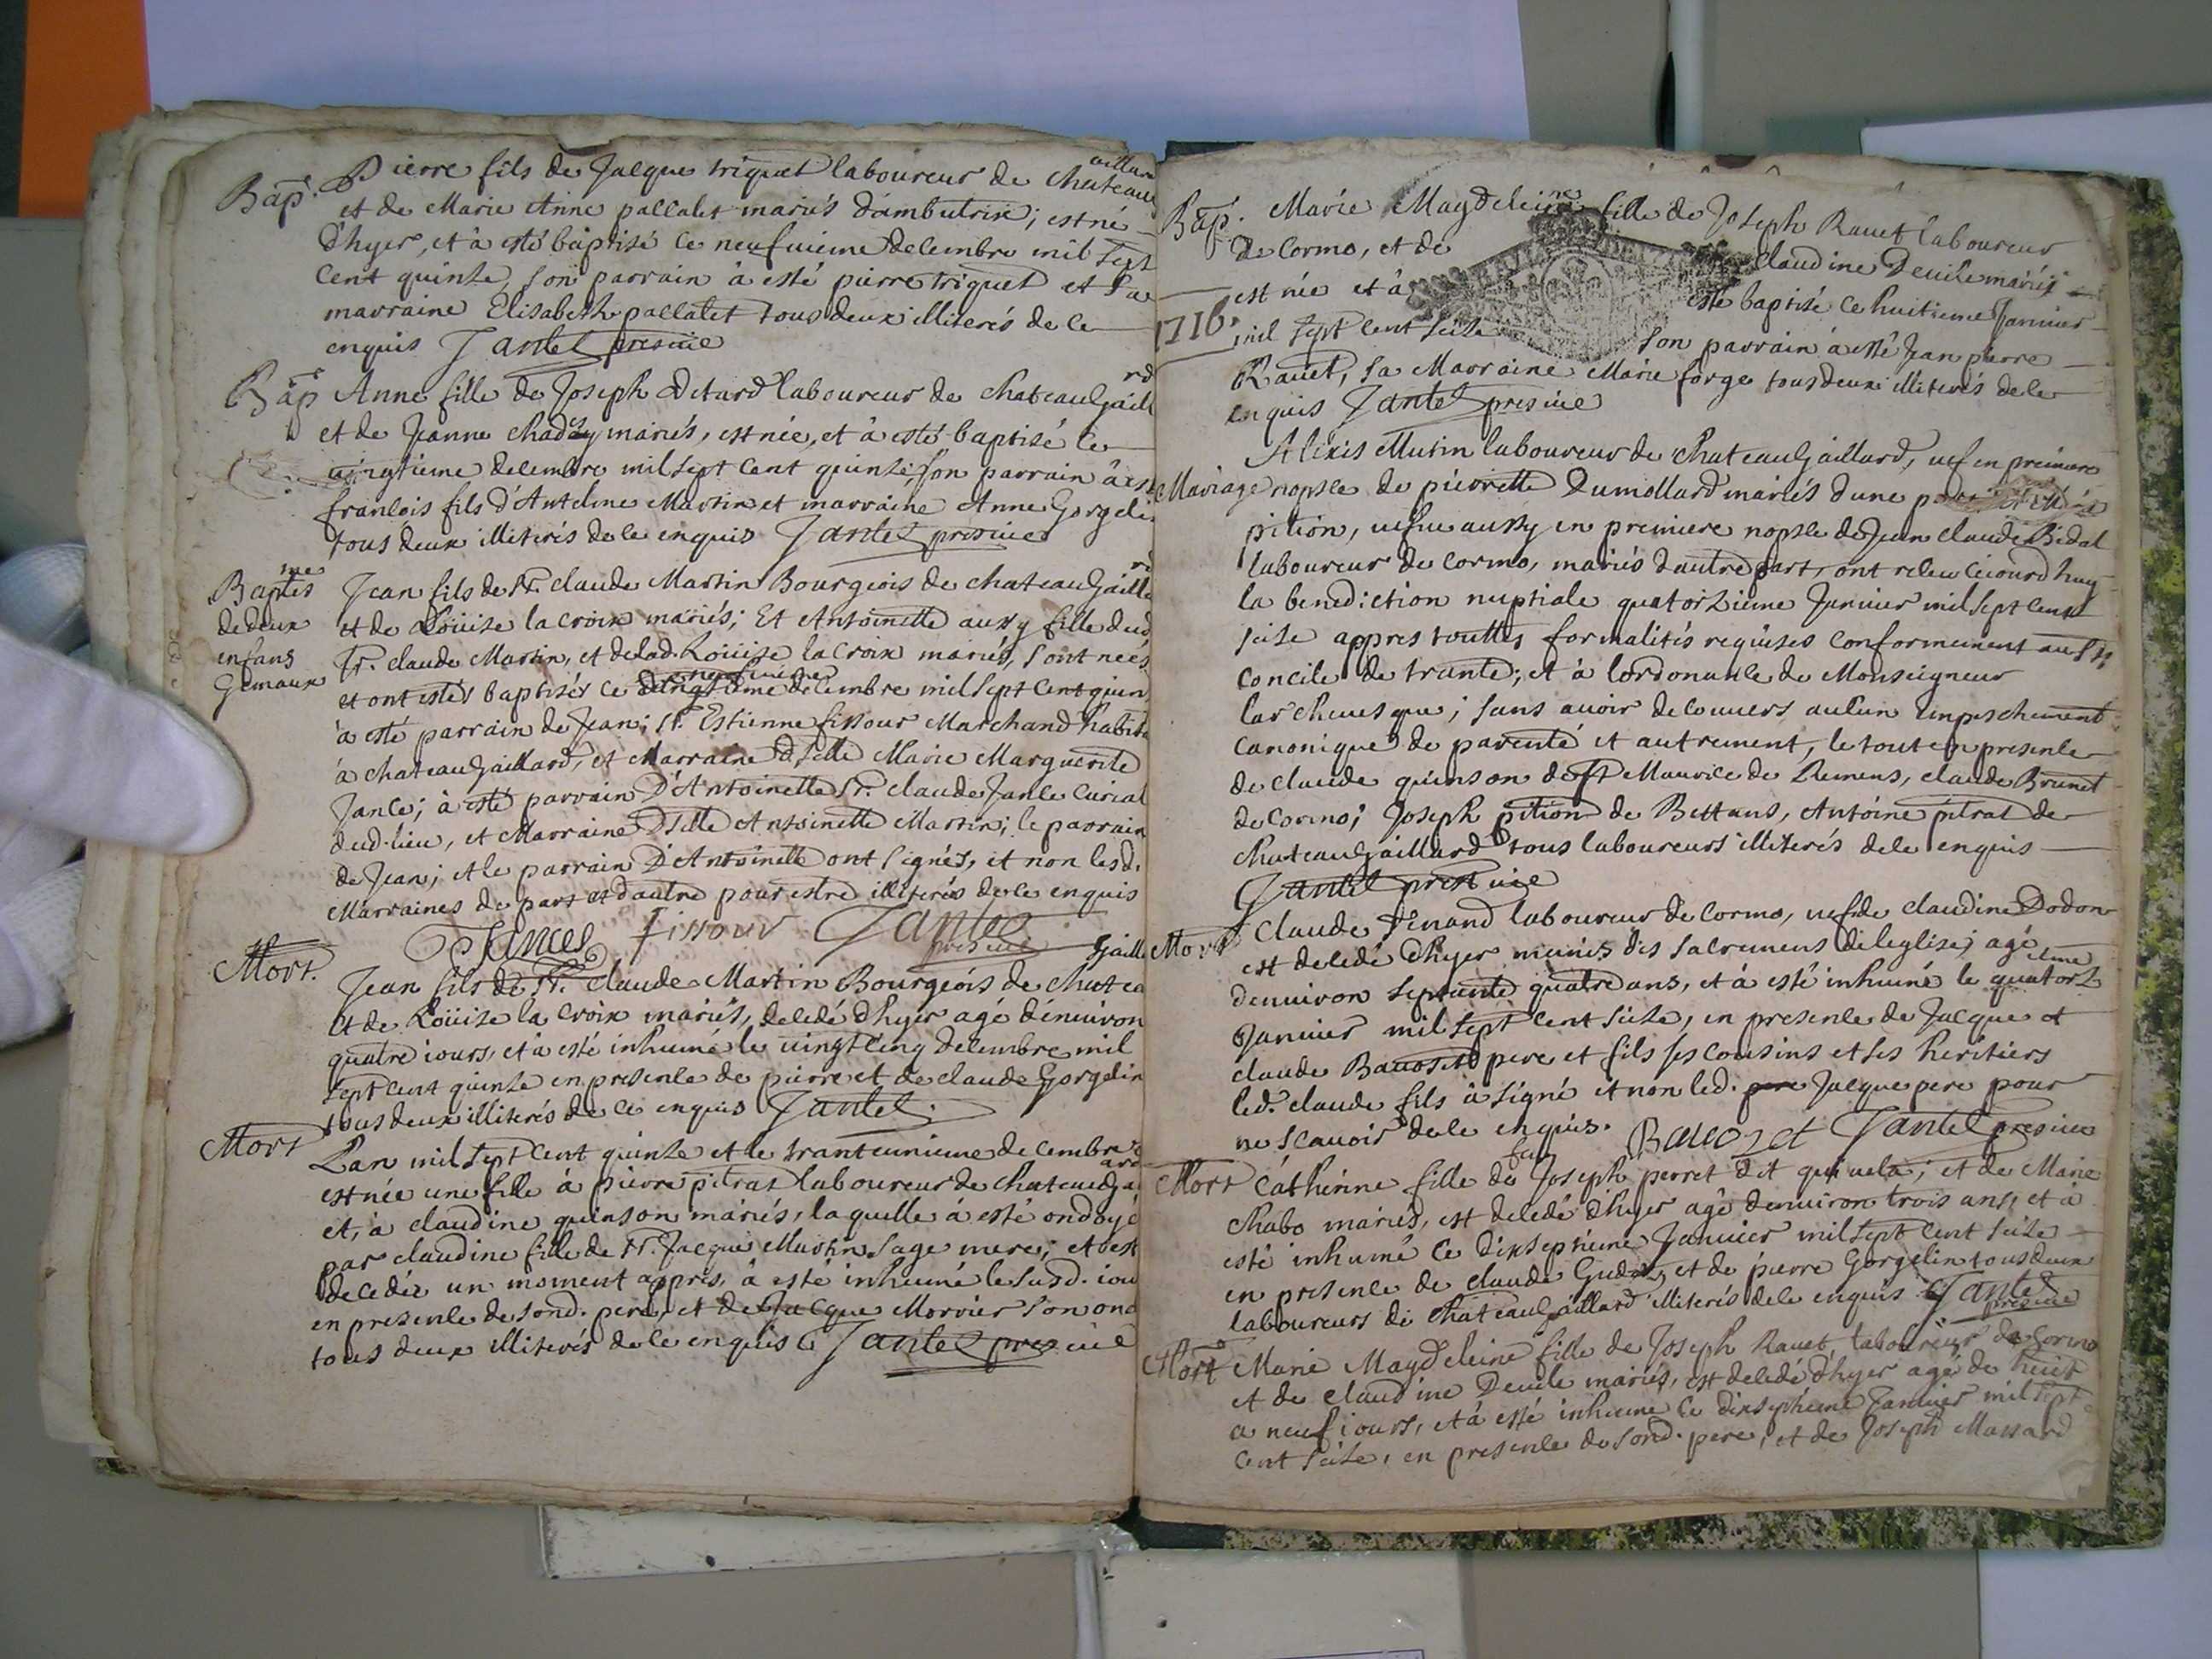 Bap. Pierre fils de Jacque triquet laboureur de chateau
et de Marie Anne pallatet mariés d'ambutrix; est né
d'hyer, et à esté baptisé ce neufuieme decembre mil sept
cent quinze, son parrain à esté pierre triquet et sa
marraine Elisabeth pallatet tous deux illiterés de ce
enquis Jantet presvire
Bap Anne fille de Joseph Detard laboureur de chateauGaill rd
et de Jeanne chadey mariés, est née, et à esté baptisé ce
vingtieme decembre mil sept cent quinze, son parrain à est
francois fils d'Antelme Martin et marraine Anne Gorgeli
tous deux illiterés de ce enquis Jantet presvire
Baptes mes
de deux
enfans
Gemaux
Jean fils de Sr. claude Martin Bourgeois de chateauGailla rd
et de Loüise la croix mariés; Et Antoinette aussy fille dud
Sr. claude Martin, et de lad. Loüise la croix mariés, sont neés
et ont estés baptisés ce decembre mil sept cent quin
à esté parrain de Jean; Sr. Estienne fissour Marchand habita
à chateauGaillard, et Marraine dselle Marie Marguerite
Jance; à esté parrain D'Antoinette Sr. claude Jance curial
dud. lieu, et Marraine Dselle Antoinette Martin; le parrain
de Jean; et le parrain D'Antoinette ont signés, et non lesd.
Marraines de part et d'autre pour estre illiterés de ce enquis
Jances Fissour Jantet
presvire
Mort. Jean fils de Sr. claude Martin Bourgeois de chatea Gailla
et de Loüise la croix mariés, decedé d'hyer agé d'énuiron
quatre iours, et à esté inhumé le vingt cinq decembre mil
sept cent quinze en presence de pierre et de claude Gorgelin
tous deux illiterés de ce enquis Jantet
Mort L'an mil sept cent quinze et le tranteunieme decembre
est née une fille à pierre pitrat laboureur de chateauGa ard
et, à claudine quinson mariés, laquelle à esté ondoyé
par claudine fille de Sr. Jacque Martin sage mere; et est
decedée un moment appres, à esté inhumé le susd. iou
en presence de sond. pere, et de Jacque Morvier son onc
tous deux illiterés de ce enquis Jantet presvire
Bap. Marie Magdeleine fille de Joseph Rauet laboureur
de Cormo, et de claudine Deuile mariés
est née et à esté baptisé ce huitieme Januier
1716. mil sept cent seize son parrain à esté Jean pierre
Rauet, sa Marraine Marie forge tous deux illiterés de ce
enquis Jantet presvire
Alexis Mutin laboureur de chateauGaillard, uef en premiere
Mariage nopsse de pierrette Dumollard mariés d'une part
pition, uefue aussy en premiere nopsse de Jean claude Bidal
laboureur de cormo, mariés d'autre part, ont receu ceiourd'huy
la benediction nuptiale quatorzieme Januier mil sept cent
seize appres touttes formalités requises conformement au St
concile de trante; et à lordonnance de Monseigneur
larcheuesque; sans auoir decouuers aucun Empeschement
canonique de parenté et autrement, le tout en presence
de claude quinson de St Maurice de Remens, claude Brunet
de cormo; Joseph pition de Bettans, Antoine pitrat de
chateauGaillard tous laboureurs illiterés de ce enquis
Jantet presvire
Mort claude Venand laboureur de cormo, uef de claudine Dodon
est decedé d'hyer munis des sacremens de leglise; agé
denuiron septante quatre ans, et à esté inhumé le quatorz ieme
Januier mil sept cent seize, en presence de Jacque et
claude Bauoset pere et fils ses cousins et ses heritiers
led. claude fils à signé et non led. pere Jacque pere pour
ne scauoir de ce enquis. Bauozet Jantet presvire
Mort Catherine fille de feu Joseph perret dit qui uela; et de Marie
chabo mariés, est decedé d'hyer agé denuiron trois ans, et à
esté inhumé ce dixseptieme Januier mil sept cent seize
en presence de claude et de pierre Gorgelin tous deux
laboureurs de chateauGaillard illiterés de ce enquis Jantet
presvire
Mort Marie Magdeleine fille de Joseph Rauet laboureur de Cormo
et de claudine Deuile mariés, est decedé d'hyer agé de huit
a neuf iours, et à esté inhumé ce dixseptieme Januier mil sept
cent seize, en presence de sond. pere, et de Joseph Massard